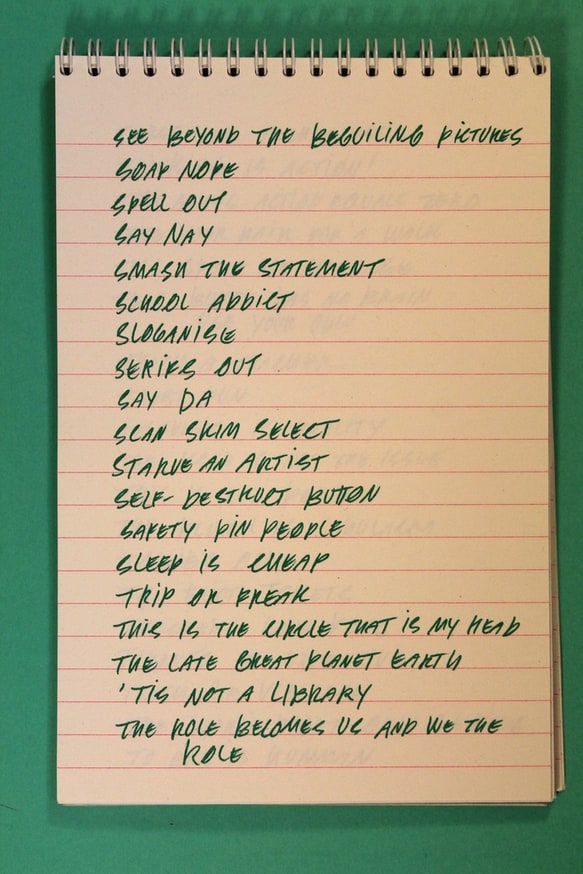 SEE BEYOND THE BEGUILING PICTURES
SOAP NOPE
SPELL OUT
SAY NAY
SMASH THE STATEMENT
SCHOOL ADDICT
SLOGANISE
SERIES OUT
SAY DA
SCAN SKIM SELECT
STARVE AN ARTIST
SELF-DESTRUCT BUTTON
SAFETY PIN PEOPLE
SLEEP IS CHEAP
TRIP OR FREAK
THIS IS THE CIRCLE THAT IS MY HEAD
THE LATE GREAT PLANET EARTH
'TIS NOT A LIBRARY
THE ROLE BECOMES US AND WE THE
ROLE